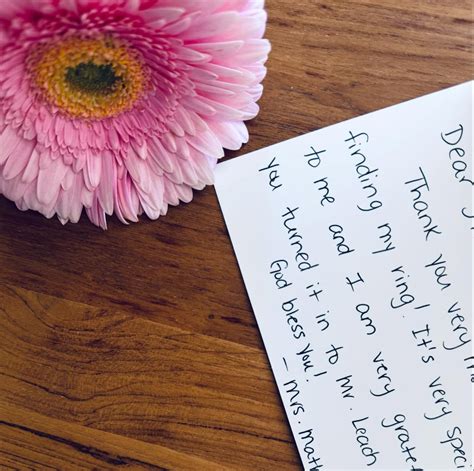 Dear
Thank you very
finding my ring! It's very
to me and I am very
you turned it in to Mr. Leach
God bless you!
- Mrs.